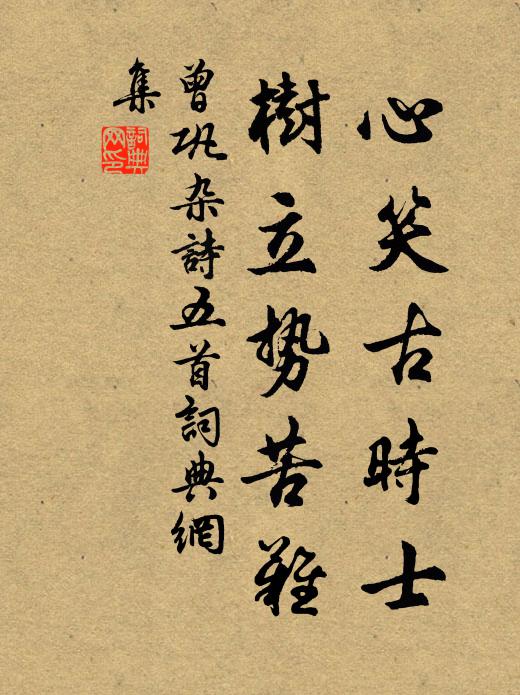 心笑古時士
樹立势苦難
曾巩杂詩五首詞典網
集
詞典
网印